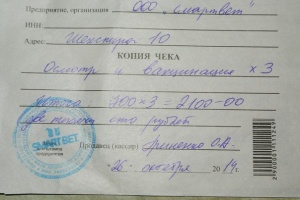 Предприятие, организация ООО "Смартвет"
ИНН
Адрес Шекспира 10
КОПИЯ ЧЕКА
Осмотр и вакцинация х 3
700х3 = 2100-00
две тысячи сто рублей
SMARTВЕТ
Продавец (кассир) О.А.
"26" октября 2014г.